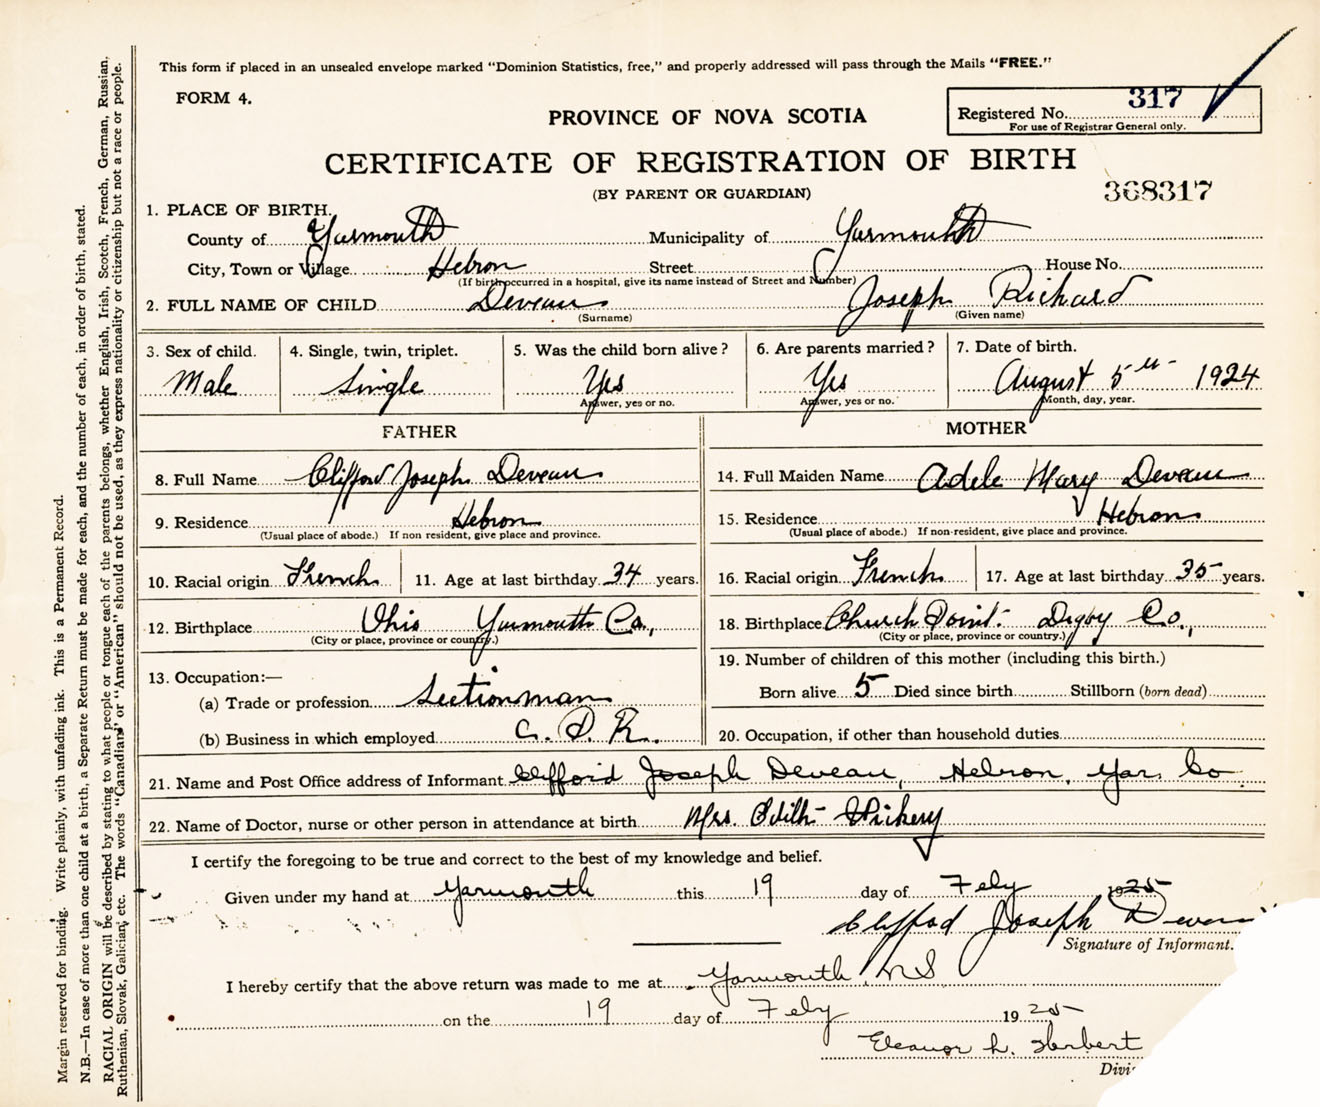 This form if placed in an unsealed envelope marked "Dominion Statistics, free," and properly addressed will pass through the Mails "FREE."
FORM 4.
PROVINCE OF NOVA SCOTIA
Registered No. 317
For use of Registrar General only.
CERTIFICATE OF REGISTRATION OF BIRTH
(BY PARENT OR GUARDIAN)
368317
1. PLACE OF BIRTH.
County of Yarmouth Municipality of Yarmouth
City, Town or Village Hebron Street House No.
(If birth occurred in a hospital, give its name instead of Street and Number)
2. FULL NAME OF CHILD Deveau Joseph Richard
(Surname) (Given name)
3. Sex of child. 4. Single, twin, triplet. 5. Was the child born alive? 6. Are parents married? 7. Date of birth.
Male Single Yes Yes August 5th 1924
Answer, yes or no. Answer, yes or no. Month, day, year.
FATHER MOTHER
8. Full Name Clifford Joseph Deveau
9. Residence Hebron
(Usual place of abode.) If non resident, give place and province.
10. Racial origin French 11. Age at last birthday 34 years.
12. Birthplace Ohio Yarmouth Co.,
(City or place, province or country.)
13. Occupation:—
(a) Trade or profession Sectionman
(b) Business in which employed C. P. R.
14. Full Maiden Name Adele Mary Deveau
15. Residence Hebron
(Usual place of abode.) If non-resident, give place and province.
16. Racial origin French 17. Age at last birthday 35 years.
18. Birthplace Church Point Digby Co.,
(City or place, province or country.)
19. Number of children of this mother (including this birth.)
Born alive 5 Died since birth Stillborn (born dead)
20. Occupation, if other than household duties
21. Name and Post Office address of Informant Clifford Joseph Deveau, Hebron, Yar. Co
22. Name of Doctor, nurse or other person in attendance at birth Mrs. Edith Vickery
I certify the foregoing to be true and correct to the best of my knowledge and belief.
Given under my hand at Yarmouth this 19 day of Feby 1925
Clifford Joseph Deveau
Signature of Informant.
I hereby certify that the above return was made to me at Yarmouth, N S
on the 19 day of Feby 1925
Eleanor L. Herbert
Divi
Margin reserved for binding. Write plainly, with unfading ink. This is a Permanent Record.
N.B.—In case of more than one child at a birth, a Separate Return must be made for each, and the number of each, in order of birth, stated.
RACIAL ORIGIN will be described by stating to what people or tongue each of the parents belongs, whether English, Irish, Scotch, French, German, Russian,
Ruthenian, Slovak, Galician, etc. The words "Canadian" or "American" should not be used, as they express nationality or citizenship but not a race or people.